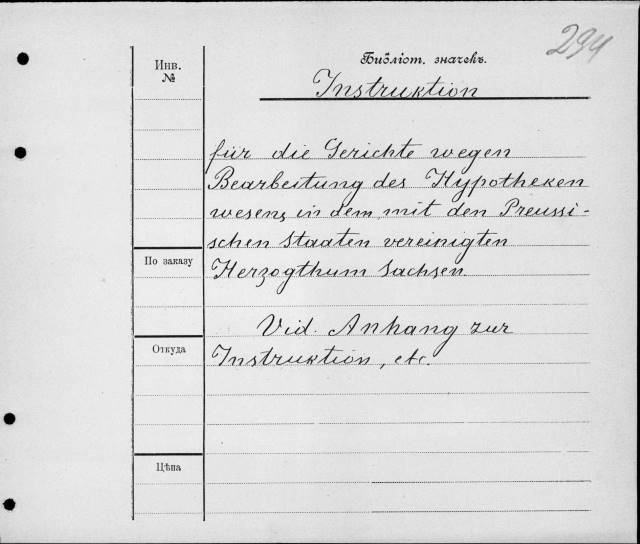 294
Библіот. значекъ.
Инв.
№
Instruktion
für die Gerichte wegen
Bearbeitung des Hypotheken
wesens in dem mit den Preussi-
schen Staaten vereinigten
По заказу
Herzogthum Sachsen.
Vid. Anhang zur
Откуда
Instruktion, etc.
Цѣна